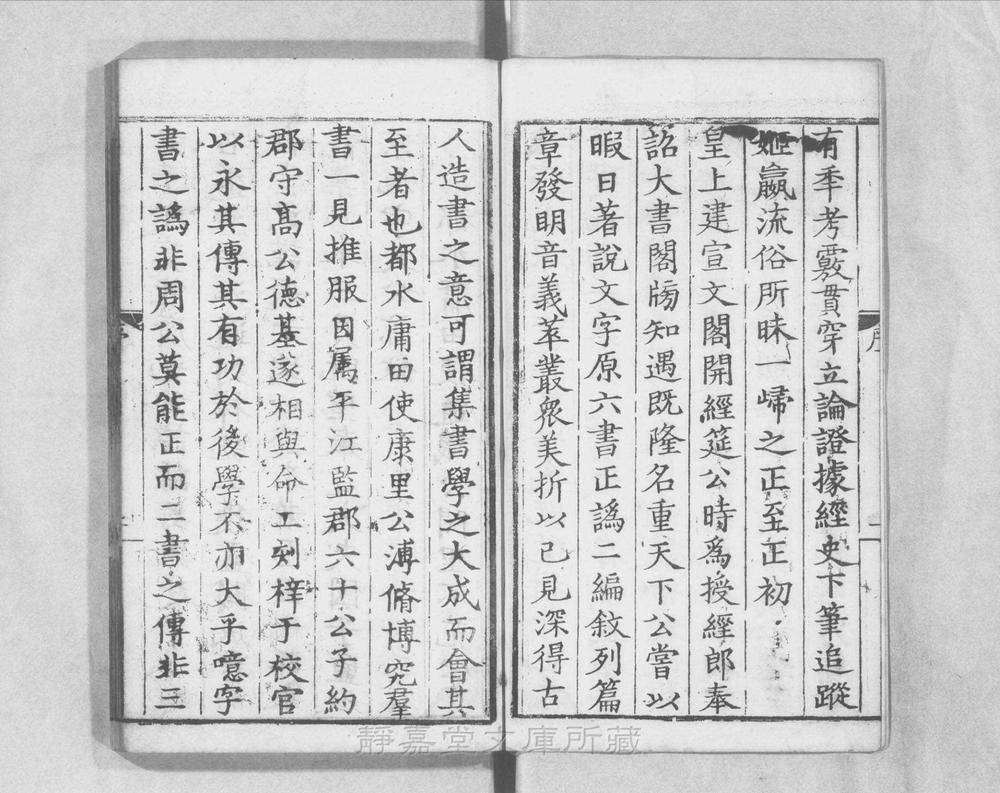 有季考覈貫穿立論證據經史下筆追蹤
姬嬴流俗所昧一歸之正至正初
皇上建宣文閣開經筵公時爲授經郎奉
詔大書閣牓知遇既隆名重天下公嘗以
暇日著說文字原六書正譌二編敘列篇
章發明音義萃叢衆美折以己見深得古
人造書之意可謂集書學之大成而會其
至者也都水庸田使康里公溥脩博究羣
書一見推服因属平江監郡六十公子約
郡守髙公德基遂相與命工刻梓于校官
以永其傳其有功於後學不亦大乎噫字
書之譌非周公莫能正而二書之傳非三
序
靜嘉堂文庫所藏